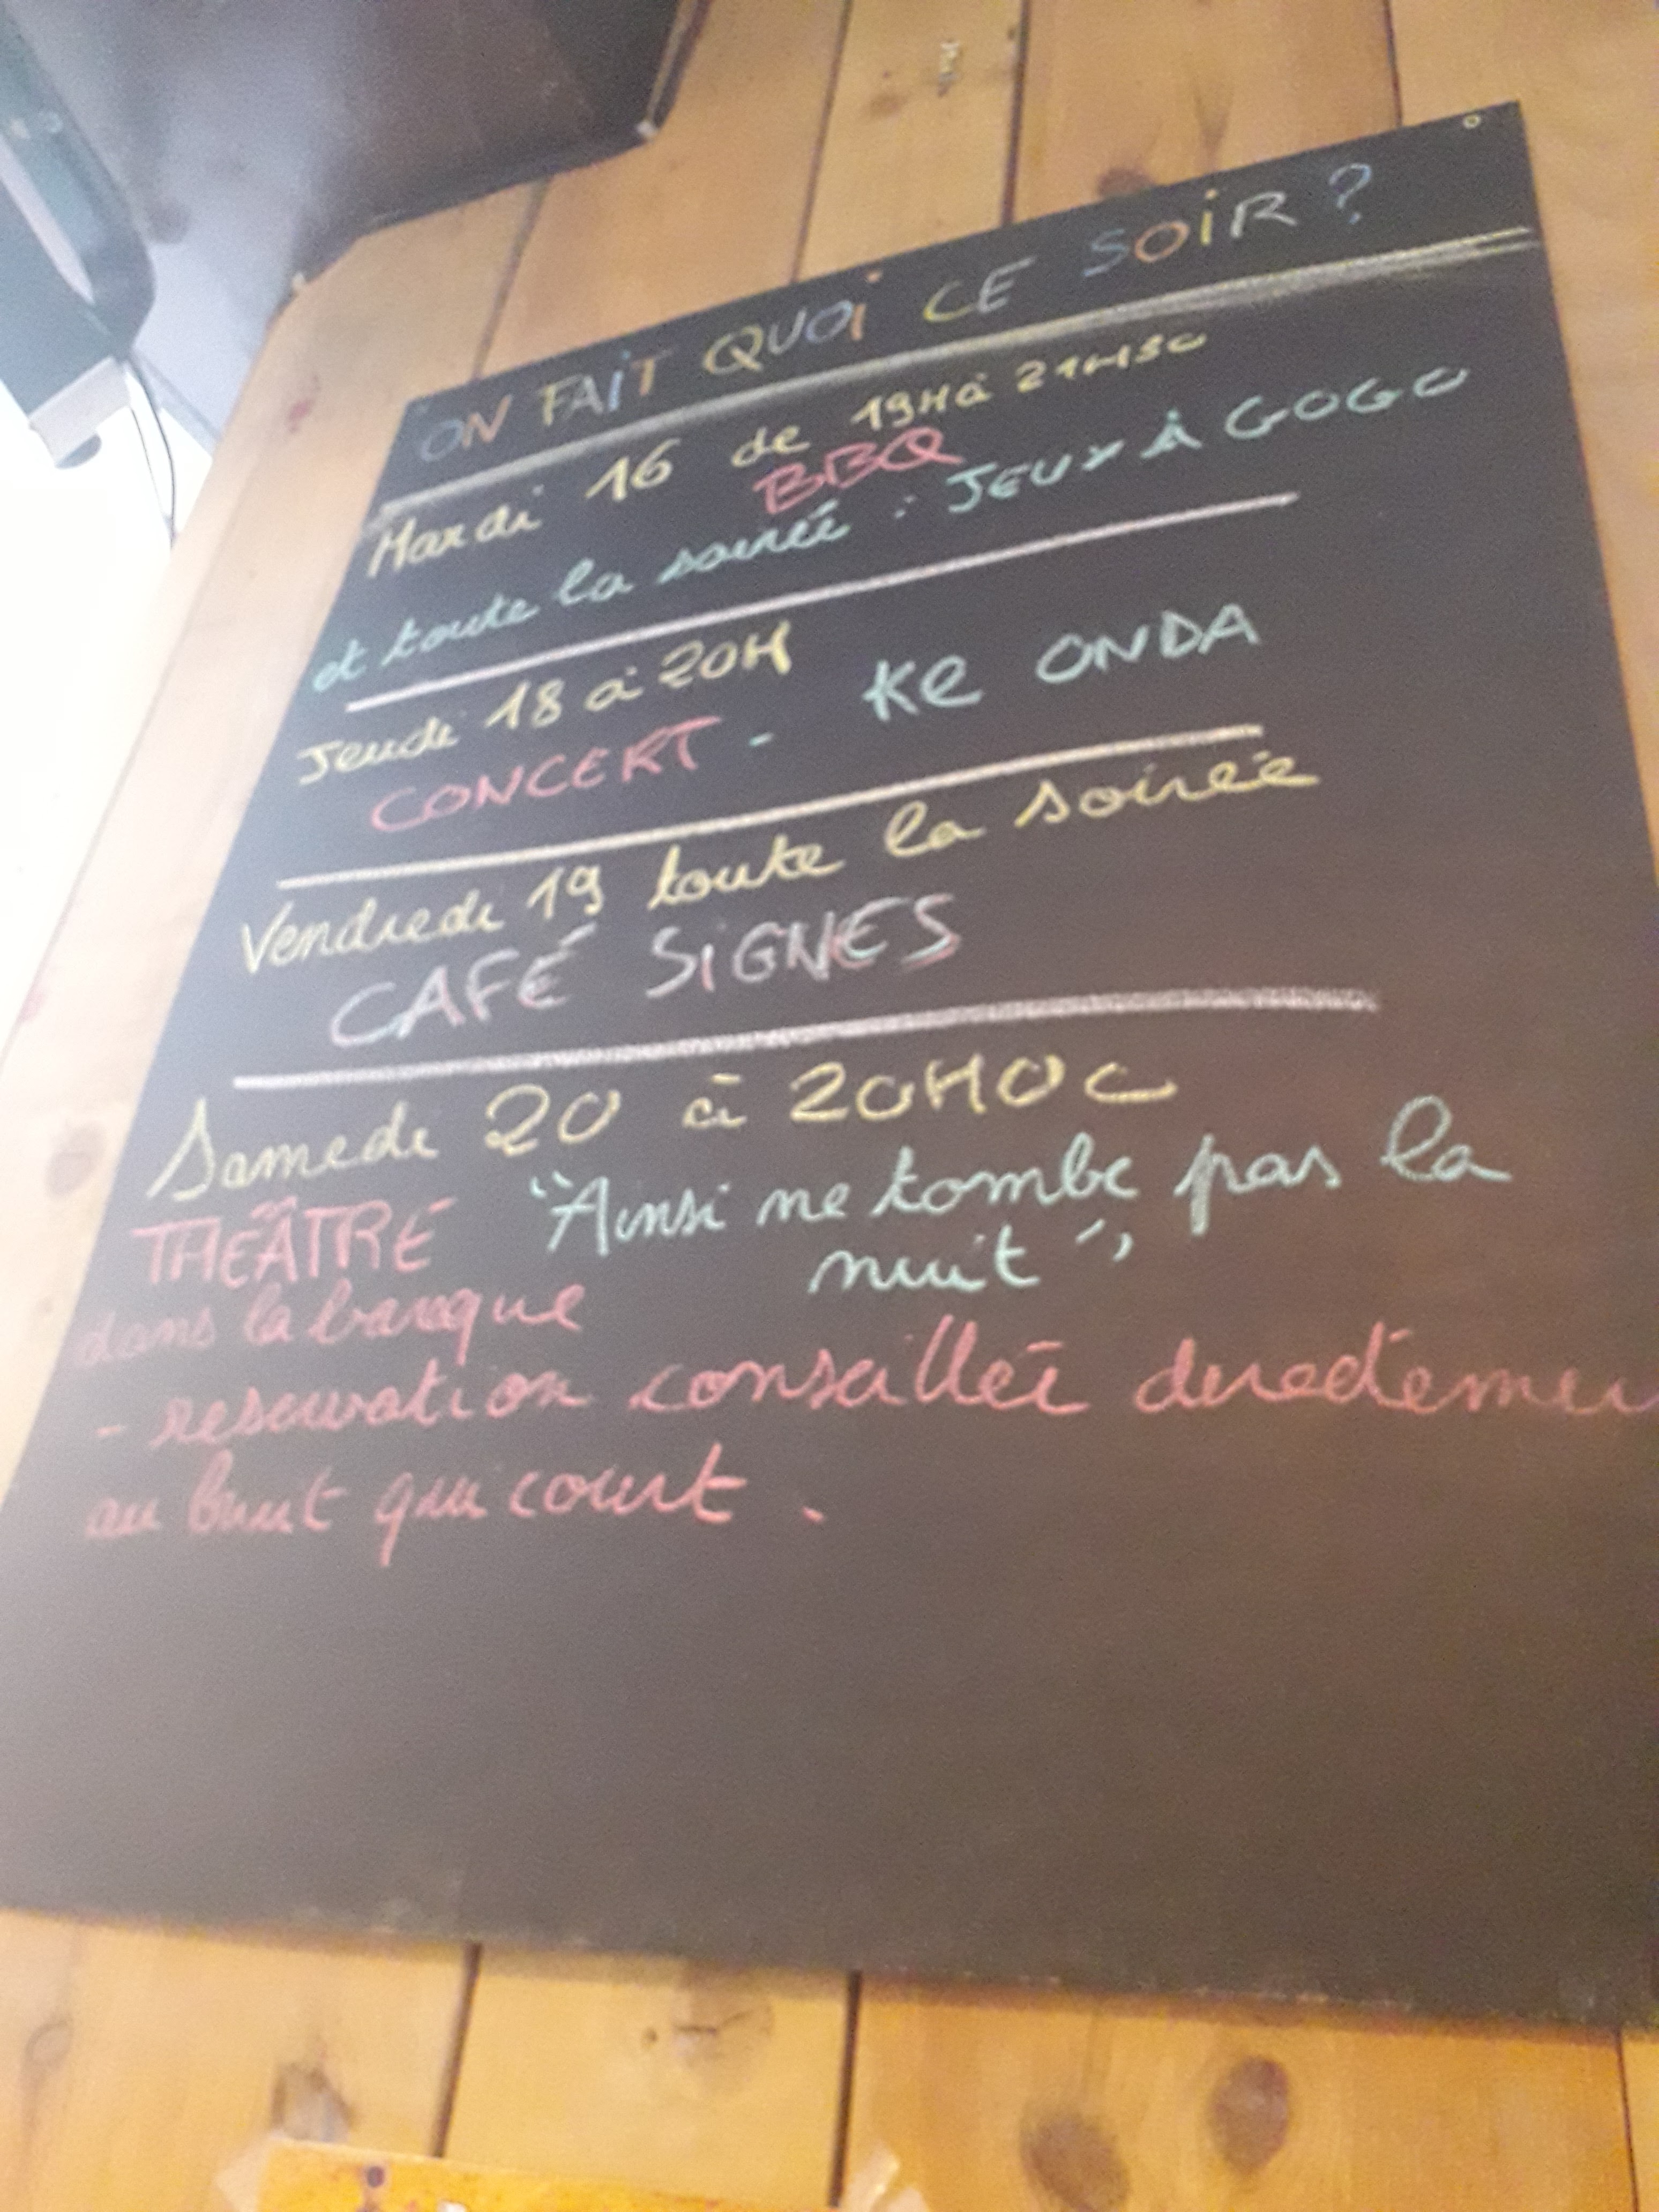 ON FAIT QUOI CE SOIR ?
Mardi 16 de 19H à 21H30
BBQ
et toute la soirée : JEUX À GOGO
Jeudi 18 à 20H
CONCERT - Ke ONDA
Vendredi 19 toute la soirée
CAFÉ SIGNES
Samedi 20 à 20H00
THÉÂTRE "Ainsi ne tombe pas la
nuit",
dans la barque
- reservation conseillée directemen
au bruit qui court.